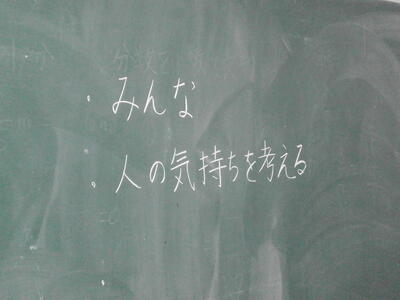 ・みんな
・人の気持ちを考える
・